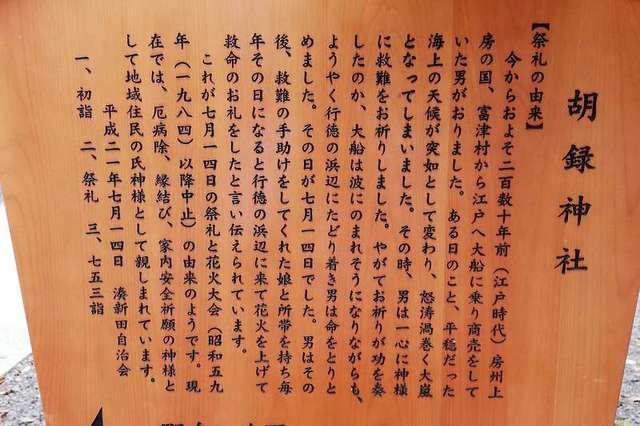 胡録神社
【祭礼の由来】
今からおよそ二百数十年前（江戸時代）房州上
房の国、富津村から江戸へ大船に乗り商売をして
いた男がおりました。ある日のこと、平穏だった
海上の天候が突如として変わり、怒涛渦巻く大嵐
となってしまいました。その時、男は一心に神様
に救難をお祈りしました。やがてお祈りが功を奏
したのか、大船は波にのまれそうになりながらも、
ようやく行徳の浜辺にたどり着き男は命をとりと
めました。その日が七月一四日でした。男はその
後、救難の手助けをしてくれた娘と所帯を持ち毎
年その日になると行徳の浜辺に来て花火を上げて
救命のお礼をしたと言い伝えられています。
これが七月一四日の祭礼と花火大会（昭和五九
年（一九八四）以降中止）の由来のようです。現
在では、厄病除、縁結び、家内安全祈願の神様と
して地域住民の氏神様として親しまれています。
平成二一年七月一四日　湊新田自治会
一、初詣　二、祭礼　三、七五三詣